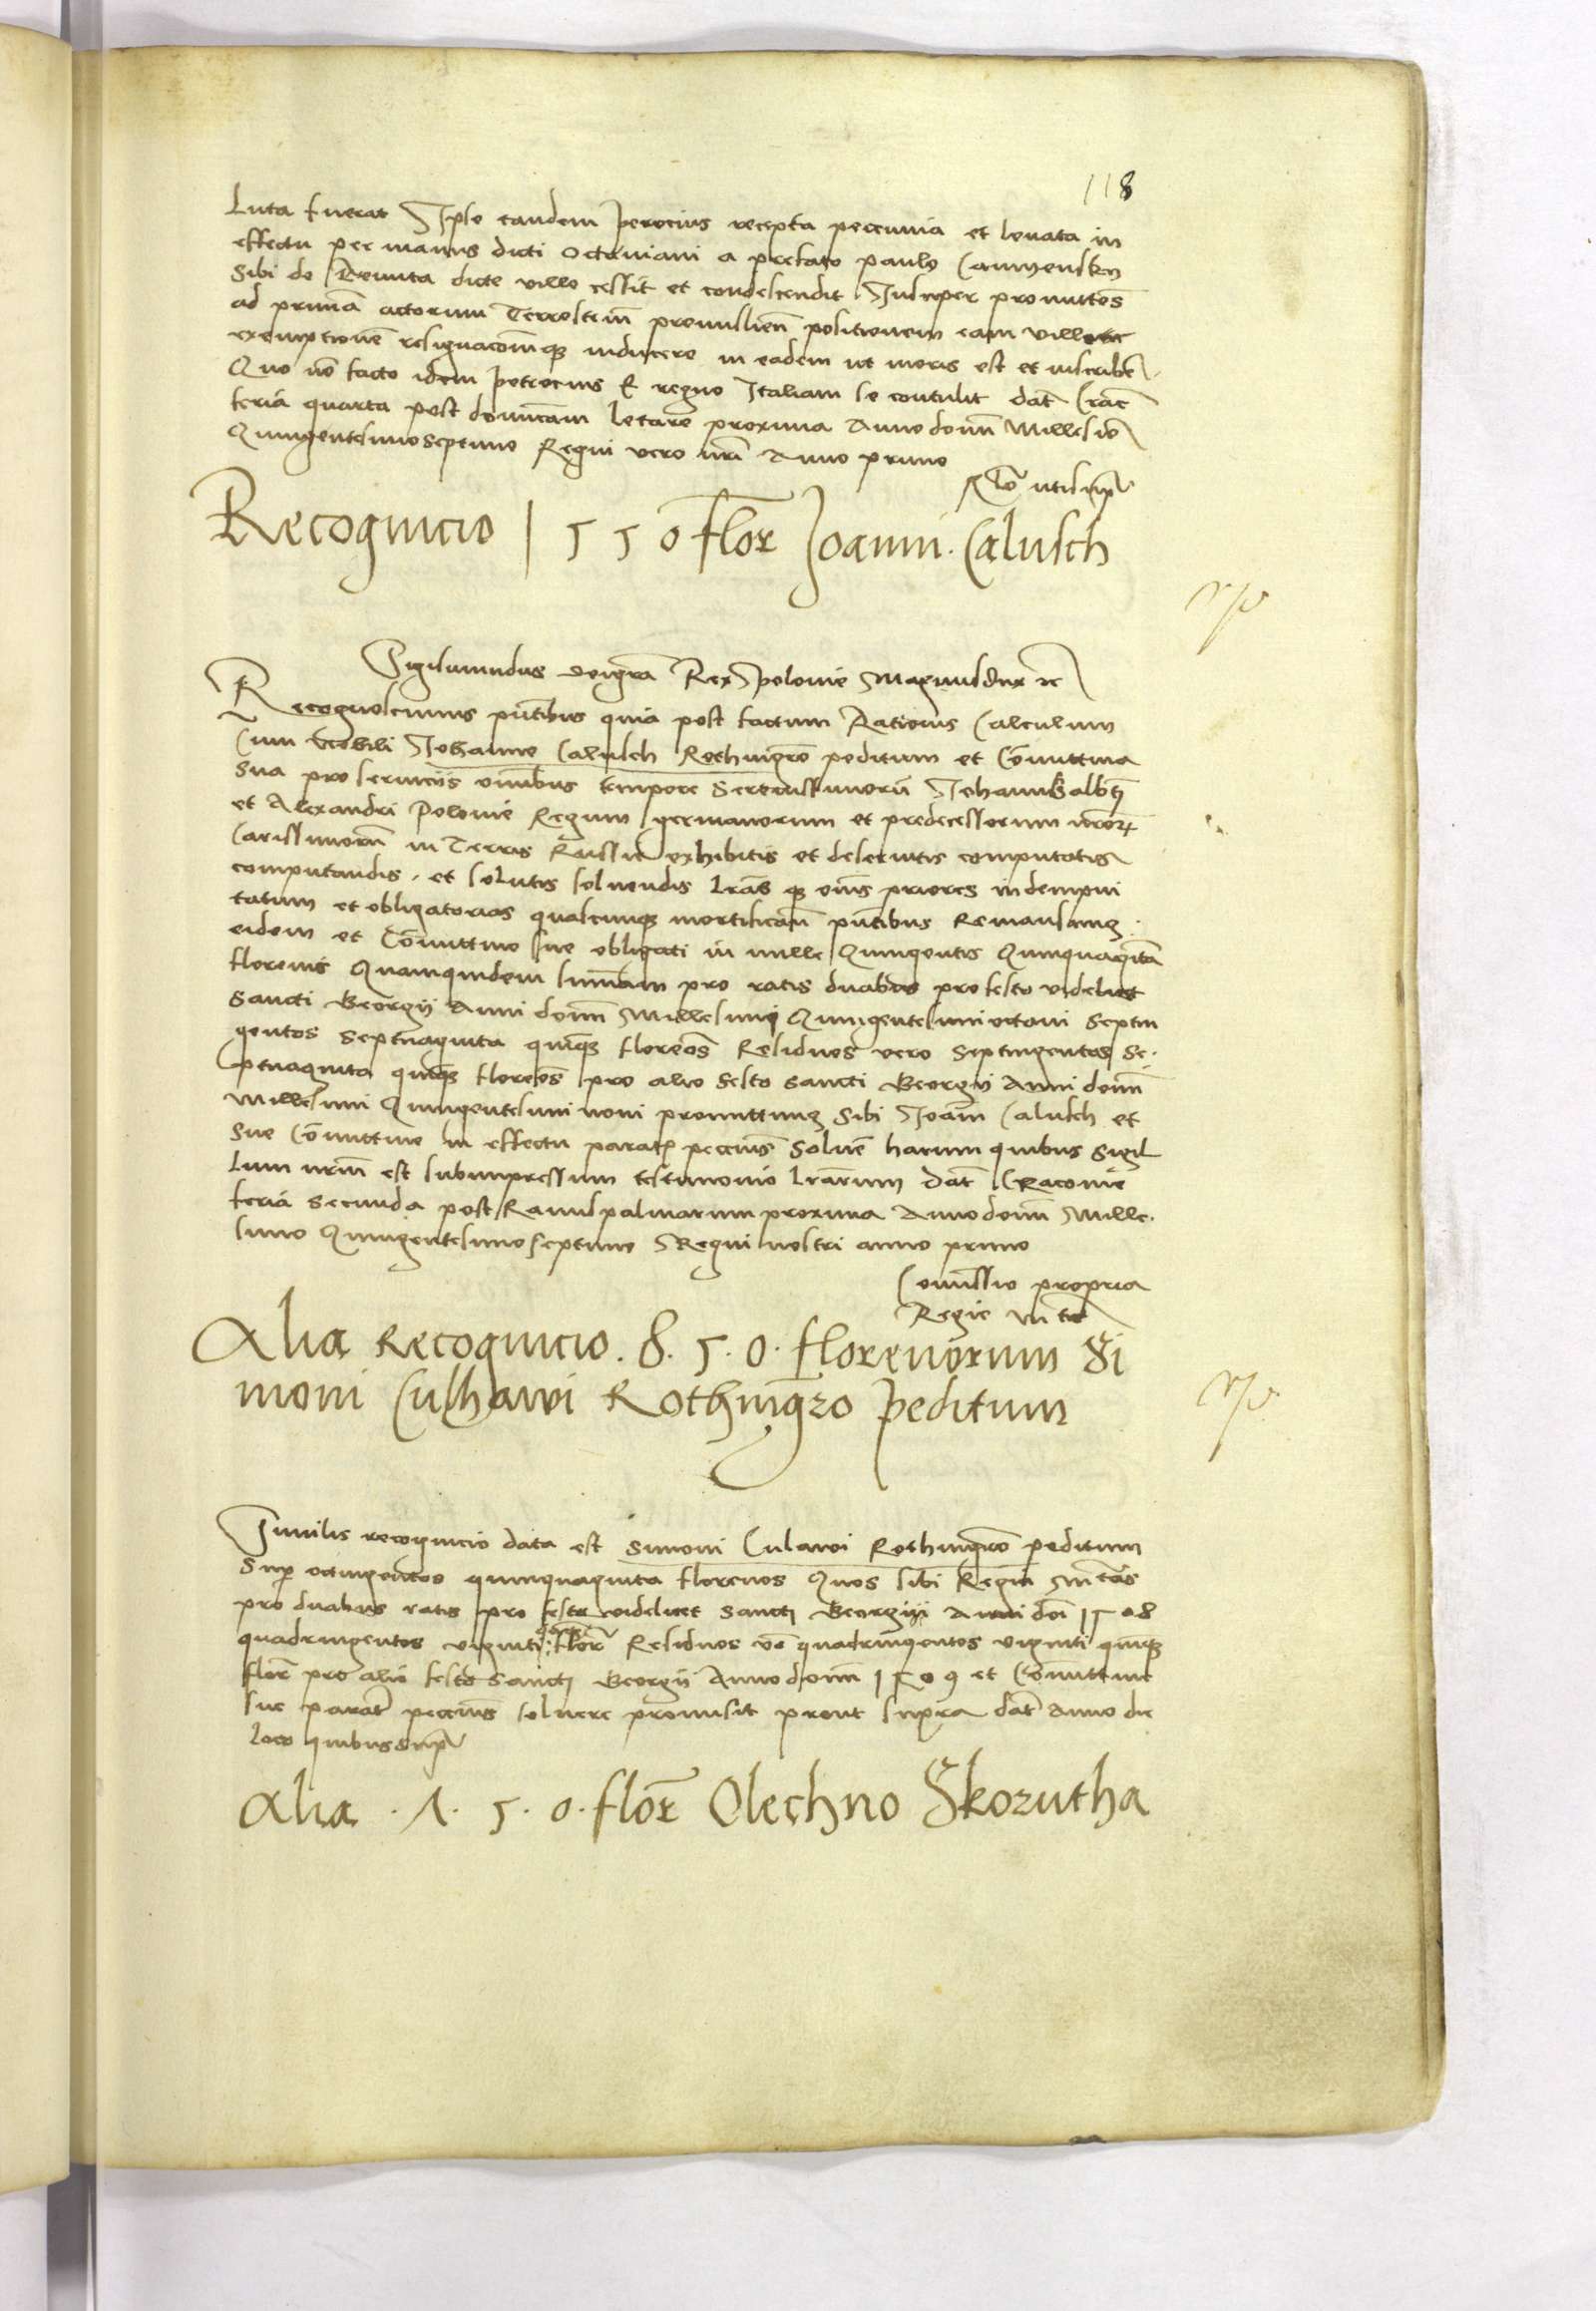 118
luta fuerat Ipse tandem petrocius recepta peccunia et levata in
effectu per manus dicti Octaviani a prefato paulo Camyensky
Sibi de Advita dicte ville cessit et condescendit Insuper promittens
ad primã actorum Terrestriũ premislieñ positionem eam ville
exemptionẽ resignacõmqȝ inducere in eadem ut moris est et inscribẽ
Quo vẽ facto idem petrocius E regno Italiam se contulit dat̃ Crac̃
feria quarta post dominicam letare proxima Anno domĩ Millesiõ
Quingentesimoseptimo Regni vero nrĩ Anno primo
Rlõ uti sup̃
Recognicio 1550 flor̃ Joanni Calusch
Sigismundus dei grã Rex polonie Magnus dux zc̃
Recognoscimus pñtibus quia post factum Rationis Calculum
Cum Nobili Johanne Calusch Rothmgrõ peditum et Cõmittiva
Sua pro serviciis omnibus tempore Serenissimorũ Johannis albtj
et Alexandri Polonie Regum germanorum et predecessorum nrõrꝝ
Carissimorũ in Terris Russie exhibitis et deservitis computatis
computandis et solutis solvendis lrãs qȝ oĩns priores indempni
tatum et obligatorias qualcunqȝ mortificam̃ pñtibus Remansimꝰ
eidem et Cõmittive sue obligati in mille Quingentis Quinquagĩta
florenis Quamquidem summam pro ratis duabus pro festo videlicet
Sancti Georgij Anni domĩ Millesimi Quingentesimi octavi Septin
gentos Septuaginta quinqȝ florenõs Residuos vero Septingentos Se
ptuaginta quinqȝ florenõs pro alio festo Sancti Georgij Anni domĩ
Millesimi Quingentesimi noni promittimꝰ Sibi Joanĩ Calusch et
Sue Cõmittive in effectu paratꝭ peccuniis Solvẽ harum quibus Sigil
lum nrũm est subimpressum testimonio lrãrum Dat̃ Cracovie
feria Secunda post Ramispalmarum proxima Anno domĩ Mille
simo Quingentesimoseptimo Regni nostri anno primo
Comissio propria
Regie Mtis
Alia Recognicio .8.5.0. florenorum Si
moni Culhawi Rothmgro peditum
Similis recognicio data est Simoni Culawi Rothmgrõ peditum
Sup̃ octingentos quinquaginta florenos Quos sibi Regia Mtãs
pro duabus ratis pro festo videlicet Sancti Georgij Anni dõi 1508
quadringentos viginti quinqȝ flor̃ Residuos vẽ quadringentos viginti quinqȝ
flor̃ pro alio festo Sancti Georgij Anno domĩ 1509 et Cõmittive
sue paratꝭ peccuniis solvere promisit prout supra dat̃ Anno die
loco quibus sup̃
Alia .1.5.0. flor̃ Olechno Skorutha